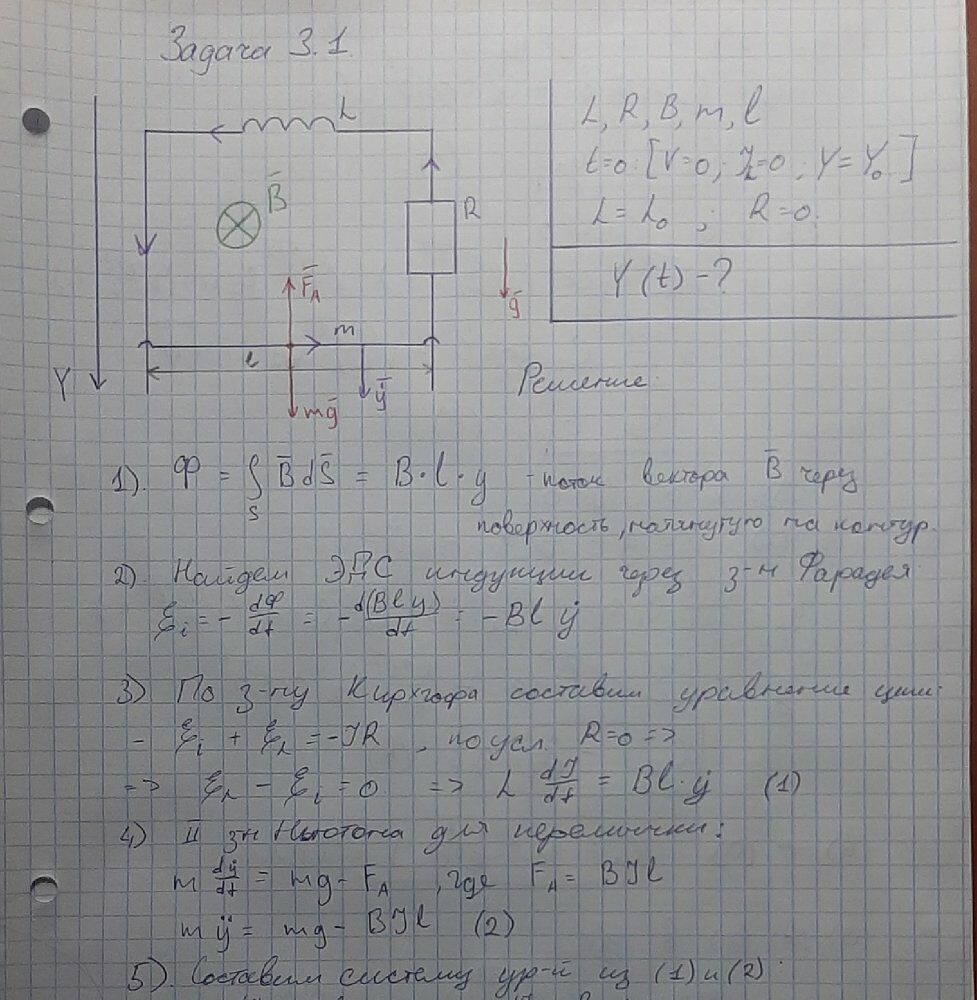 Задача 3.1.
L
B̄
R
F̄_A
m
ḡ
l
Y
mḡ
ȳ
L, R, B, m, l
t=0: [V=0; I_L=0; Y=Y₀]
L = L₀ ; R=0.
Y(t) - ?
Решение:
1). Ф = ∫_S B̄ dS̄ = B·l·y - поток вектора B̄ через
поверхность, натянутую на контур.
2). Найдем ЭДС индукции через з-н Фарадея
ℰ_i = - dФ/dt = - d(Bly)/dt = - Bl ẏ
3) По з-ну Кирхгофа составим уравнение цепи:
- ℰ_i + ℰ_L = -IR , по усл. R=0 =>
=> ℰ_L - ℰ_i = 0 => L dI/dt = Bl·ẏ (1)
4) II зн Ньютона для перемычки:
m dẏ/dt = mg - F_A , где F_A = BIl
mÿ = mg - BIl (2)
5). Составим систему ур-й из (1) и (2):